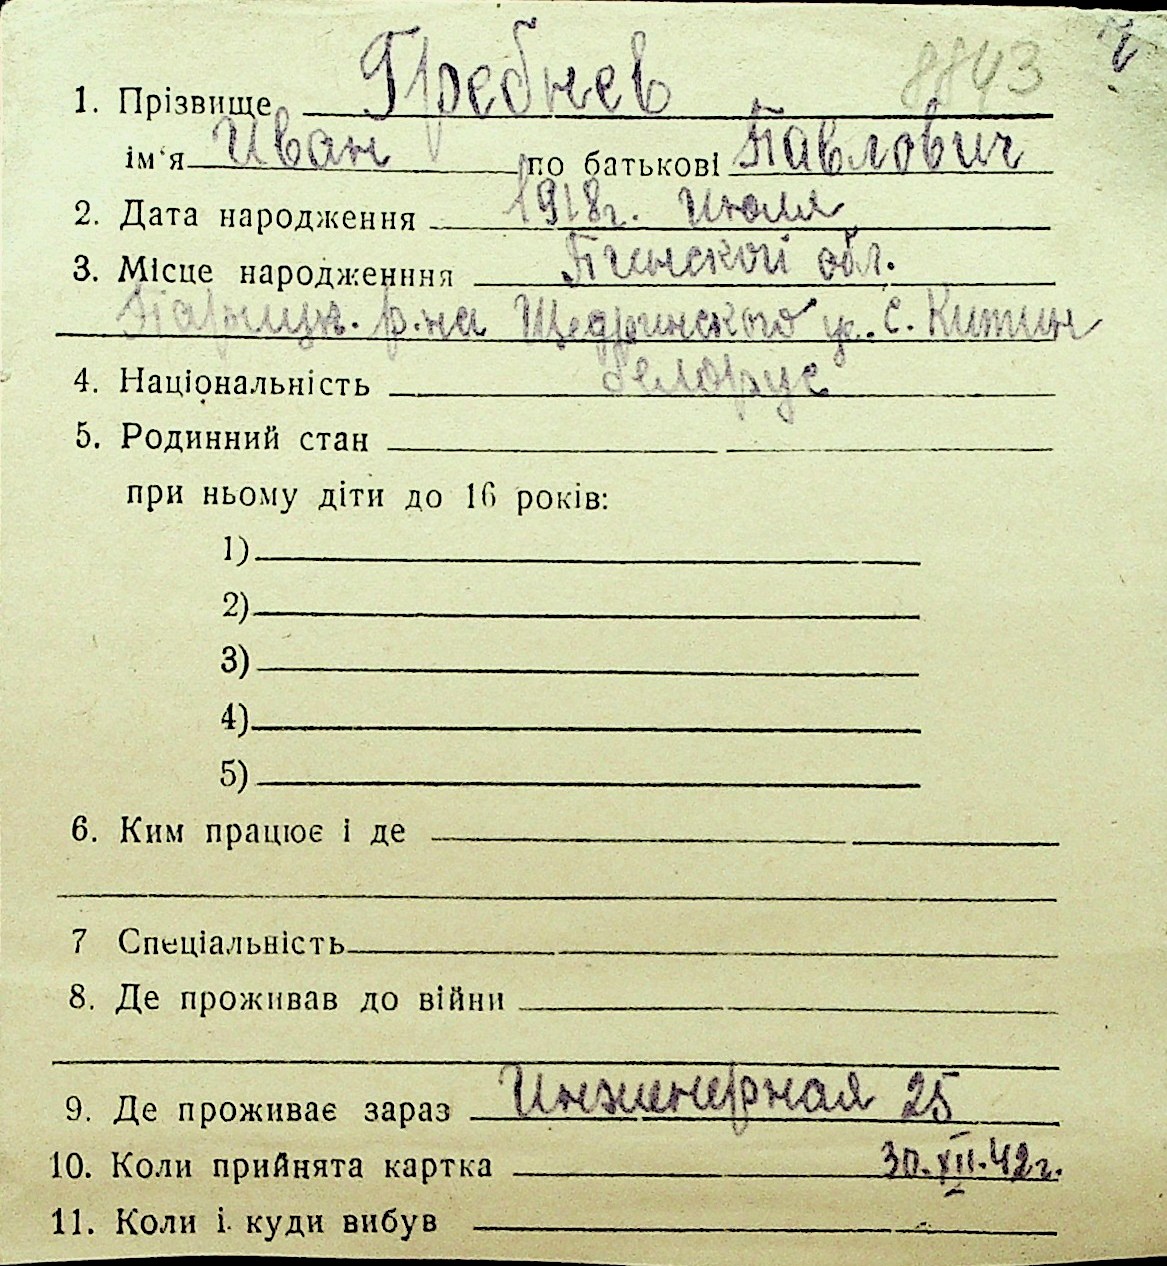 8843
1. Прізвище Гребнев
ім'я Иван по батькові Павлович
2. Дата народження 1918г. Июля
3. Місце народженння Пинской обл.
р-на Щедринского с. Китин
4. Національність белорус
5. Родинний стан
при ньому діти до 16 років:
1)
2)
3)
4)
5)
6. Ким працює і де
7 Спеціальність
8. Де проживав до війни
9. Де проживає зараз Инженерная 25
10. Коли прийнята картка 30.XII.42г.
11. Коли і куди вибув